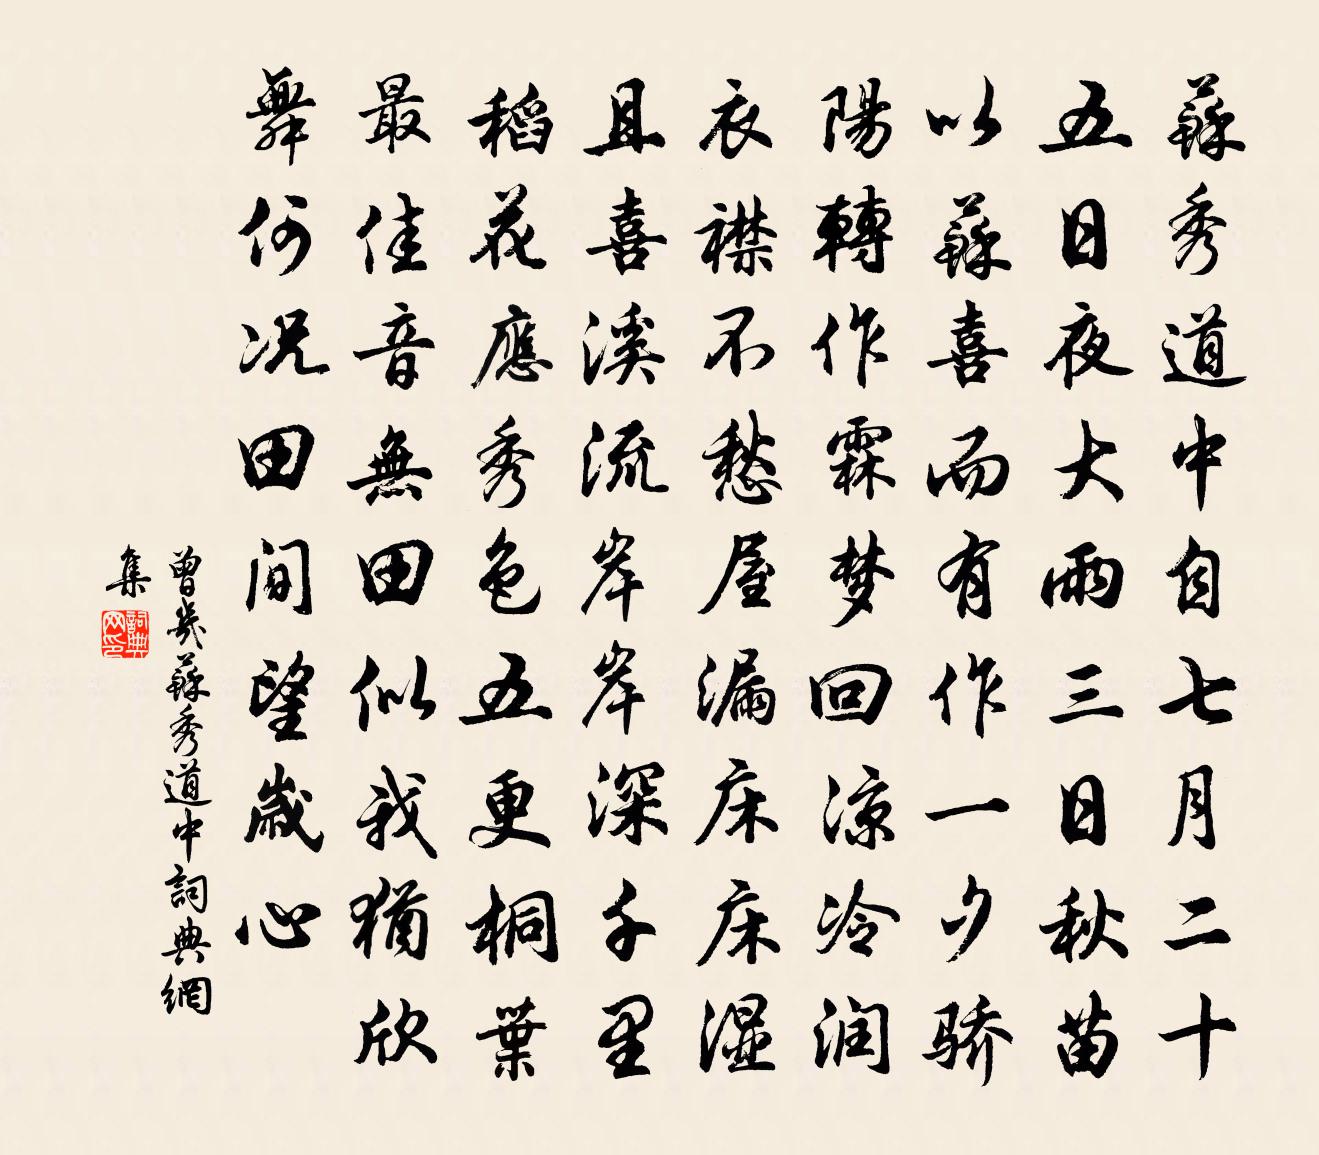 蘇秀道中自七月二十
五日夜大雨三日秋苗
以蘇喜而有作一夕骄
陽轉作霖梦回凉冷润
衣襟不愁屋漏床床湿
且喜溪流岸岸深千里
稻花應秀色五更桐葉
最佳音無田似我猶欣
舞何况田間望歲心
曾幾蘇秀道中詞典網
集
詞典
网印